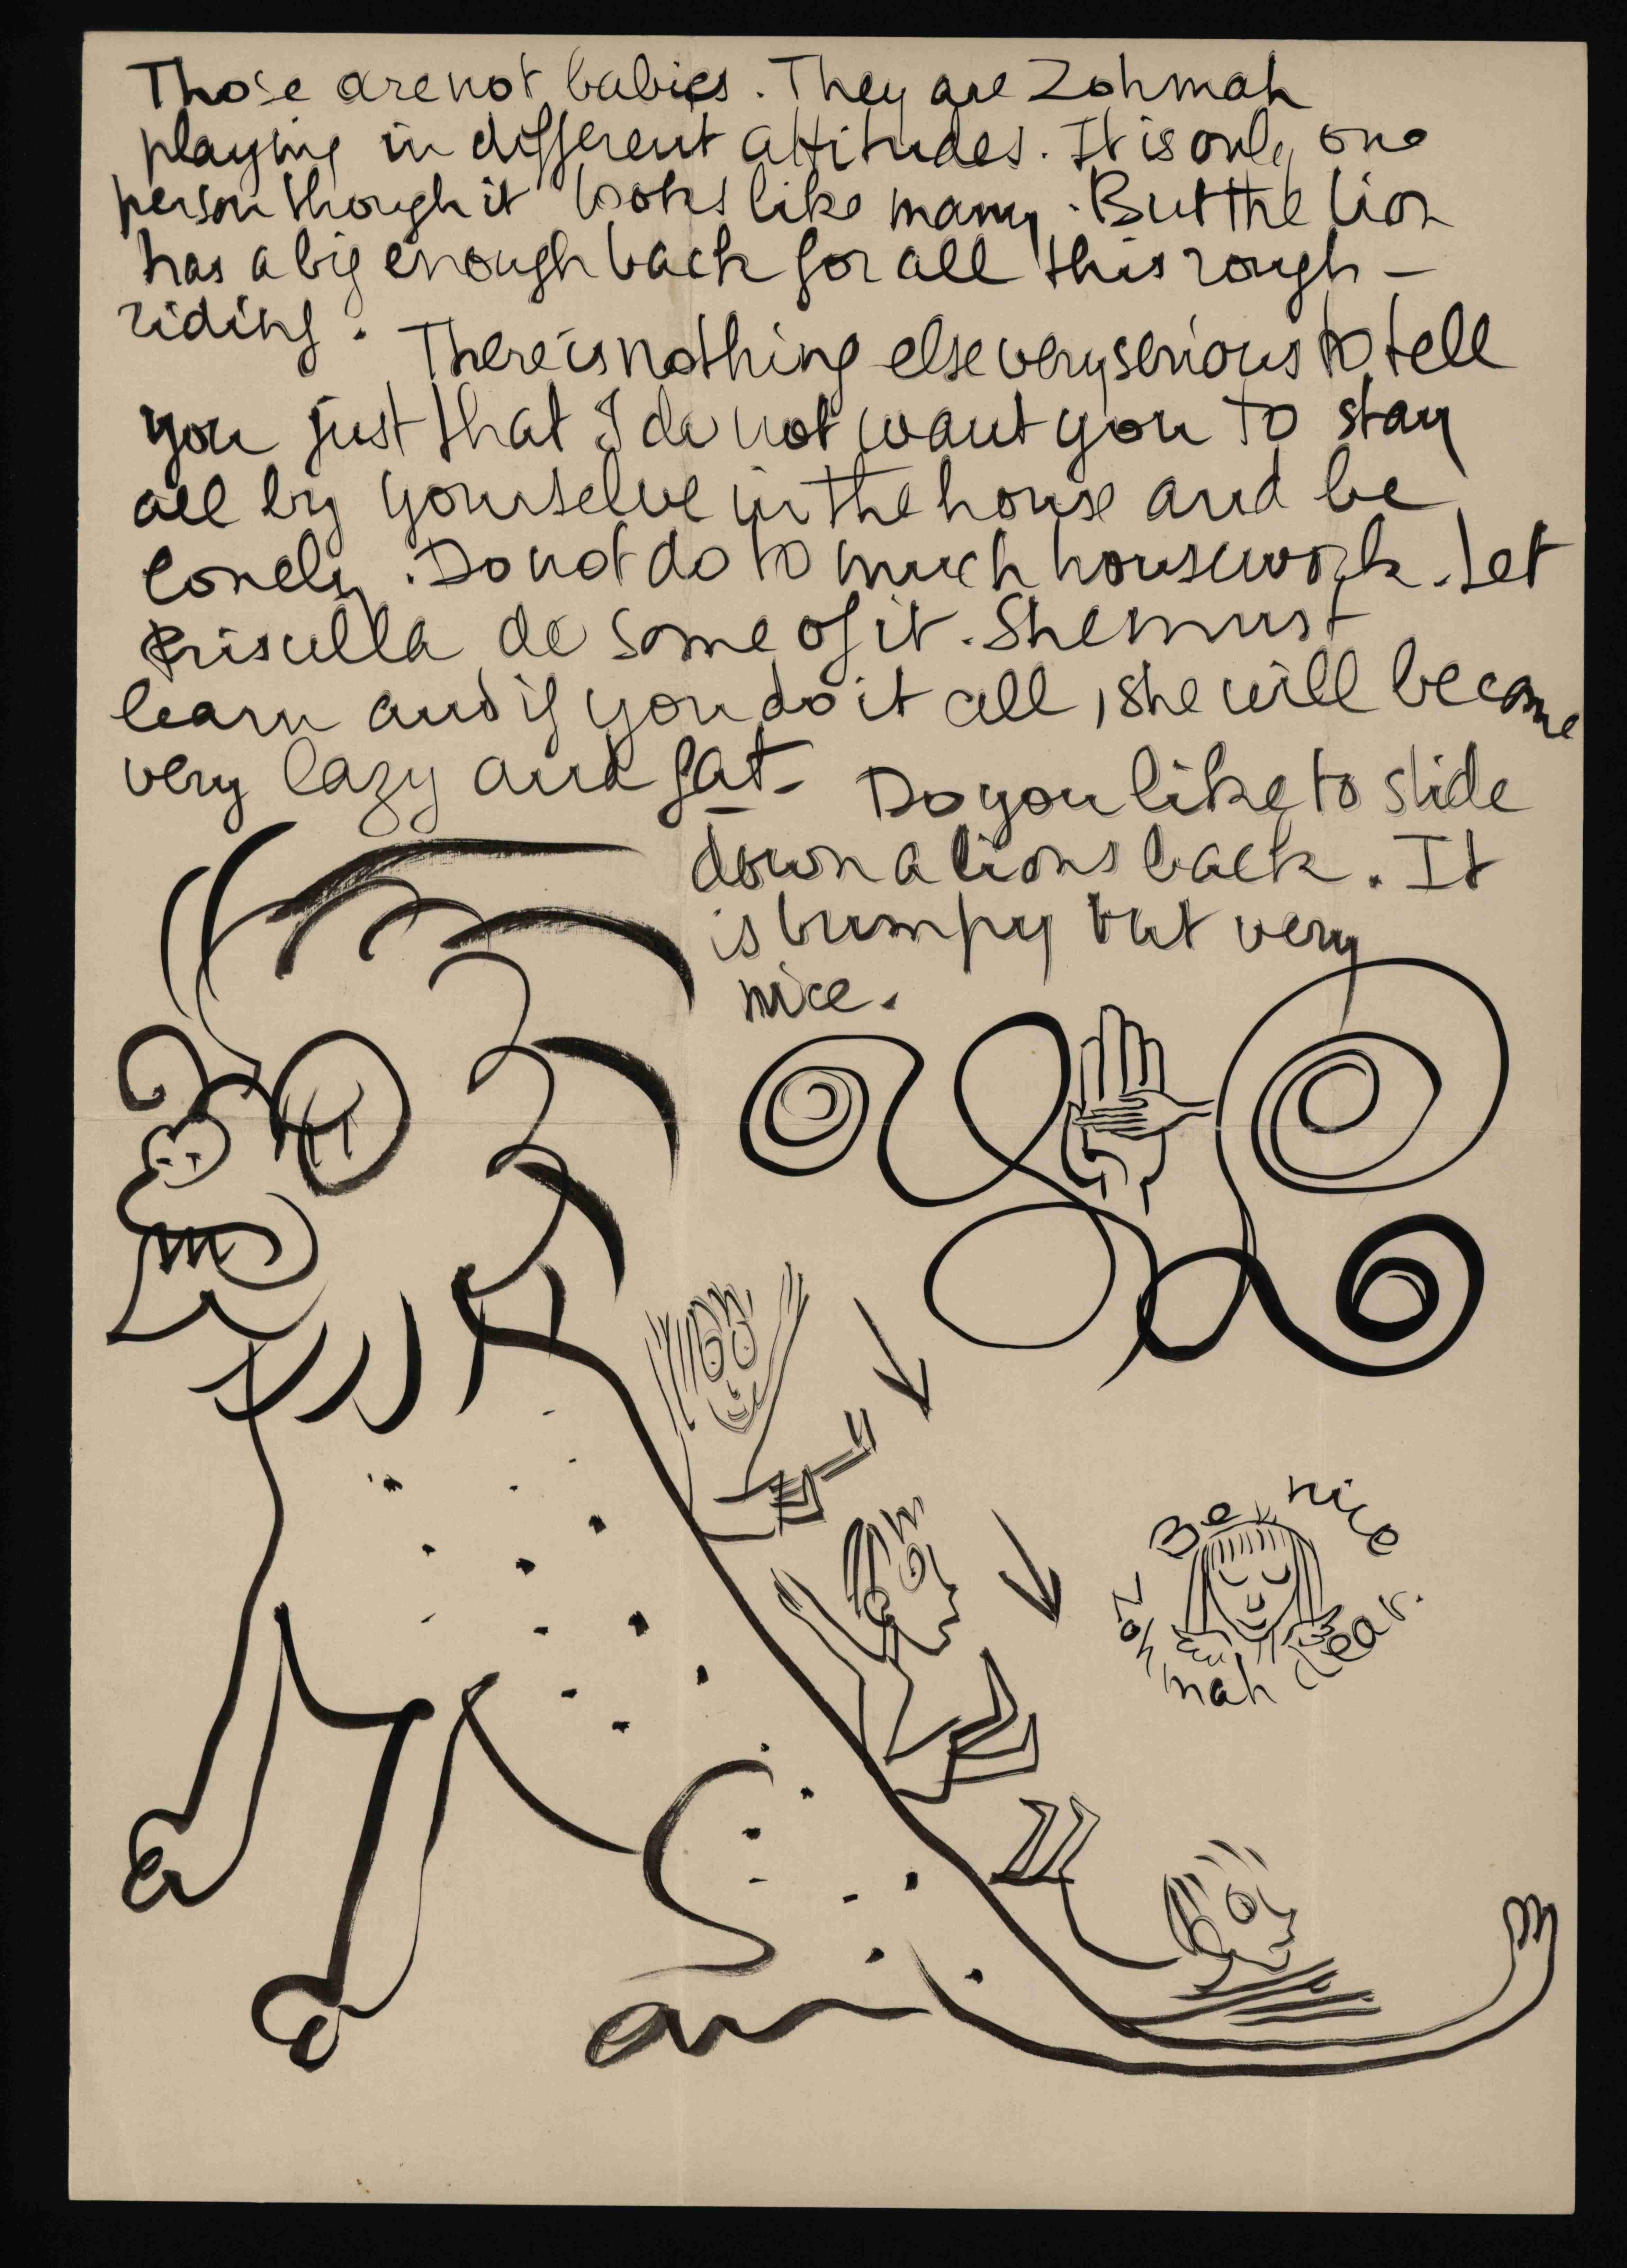 Those are not babies. They are Zohmah
playing in different attitudes. It is only one
person though it looks like many. But the lion
has a big enough back for all this rough-
riding. There is nothing else very serious to tell
you just that I do not want you to stay
all by yourselve in the house and be
lonely. Do not do to much housework. Let
Priscilla do some of it. She must
learn and if you do it all, she will become
very lazy and fat. Do you like to slide
down a lions back. It
is bumpy but very
nice.
Be nice
Zohmah dear.